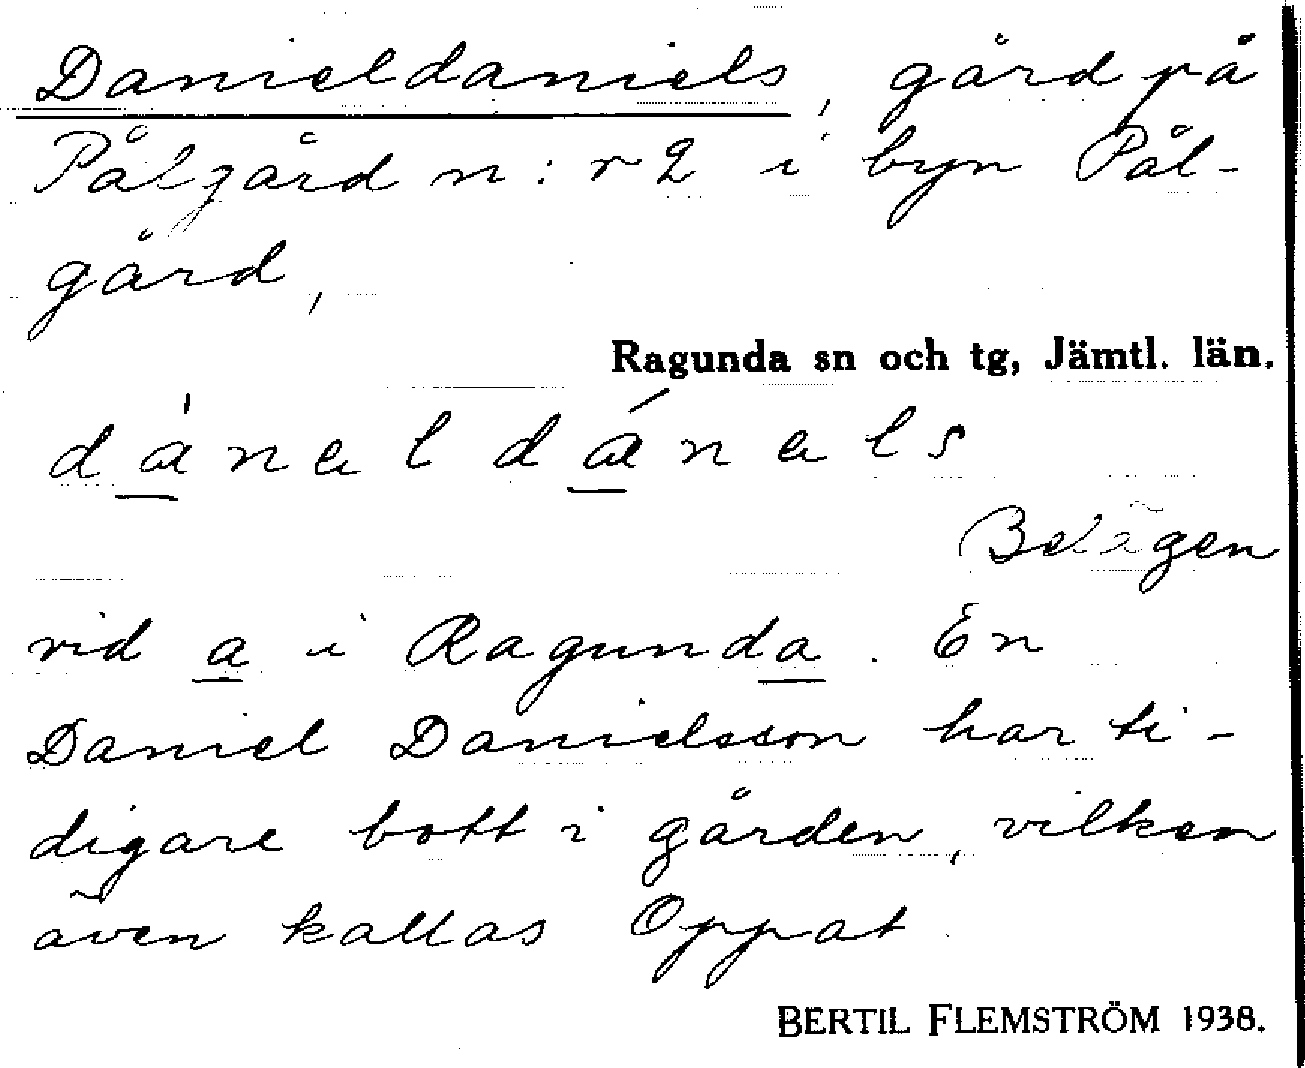 Danieldaniels, gård på
Pålgård n:r 2 i byn Pål-
gård,
Ragunda sn och tg, Jämtl. län.
Belägen
vid a i Ragunda. En
Daniel Danielsson har ti-
digare bott i gården, vilken
även kallas Oppat.
BERTIL FLEMSTRÖM 1938.